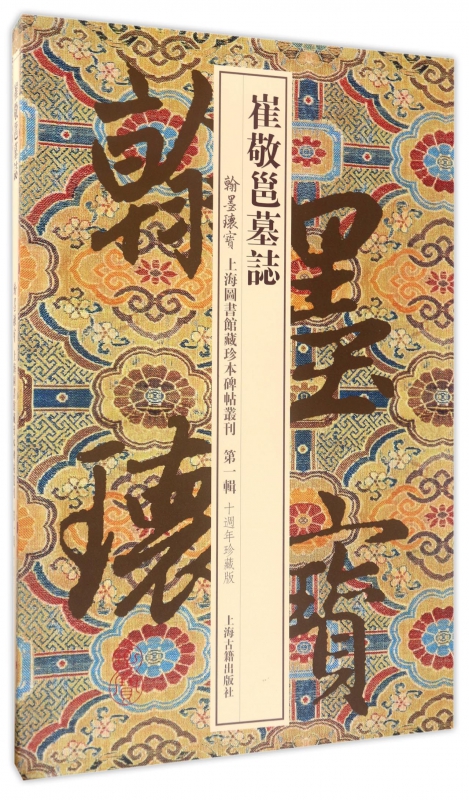 崔敬邕墓誌
翰墨瓌寶 上海圖書館藏珍本碑帖叢刊 第一輯 十週年珍藏版
上海古籍出版社
翰墨
瓌寶
崔敬邕墓誌